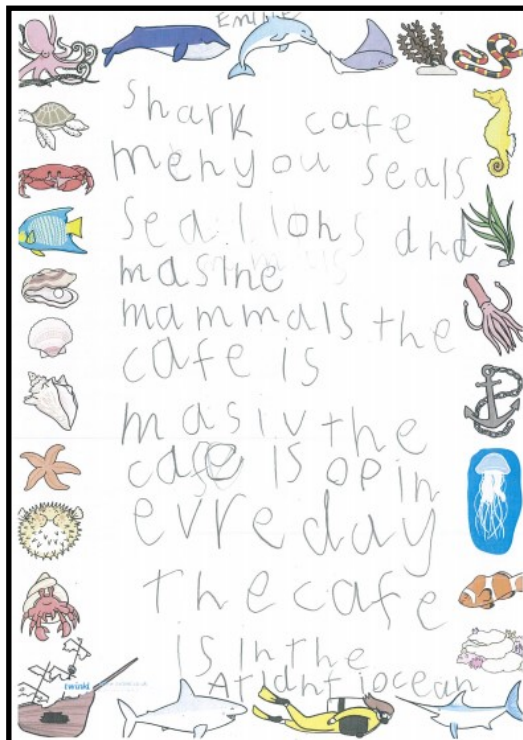 Shark cafe
menyou seals
sea lions and
masine
mammals the
cafe is
masiv the
cafe is opin
evre day
the cafe
is in the
Atlant iocean
twinkl